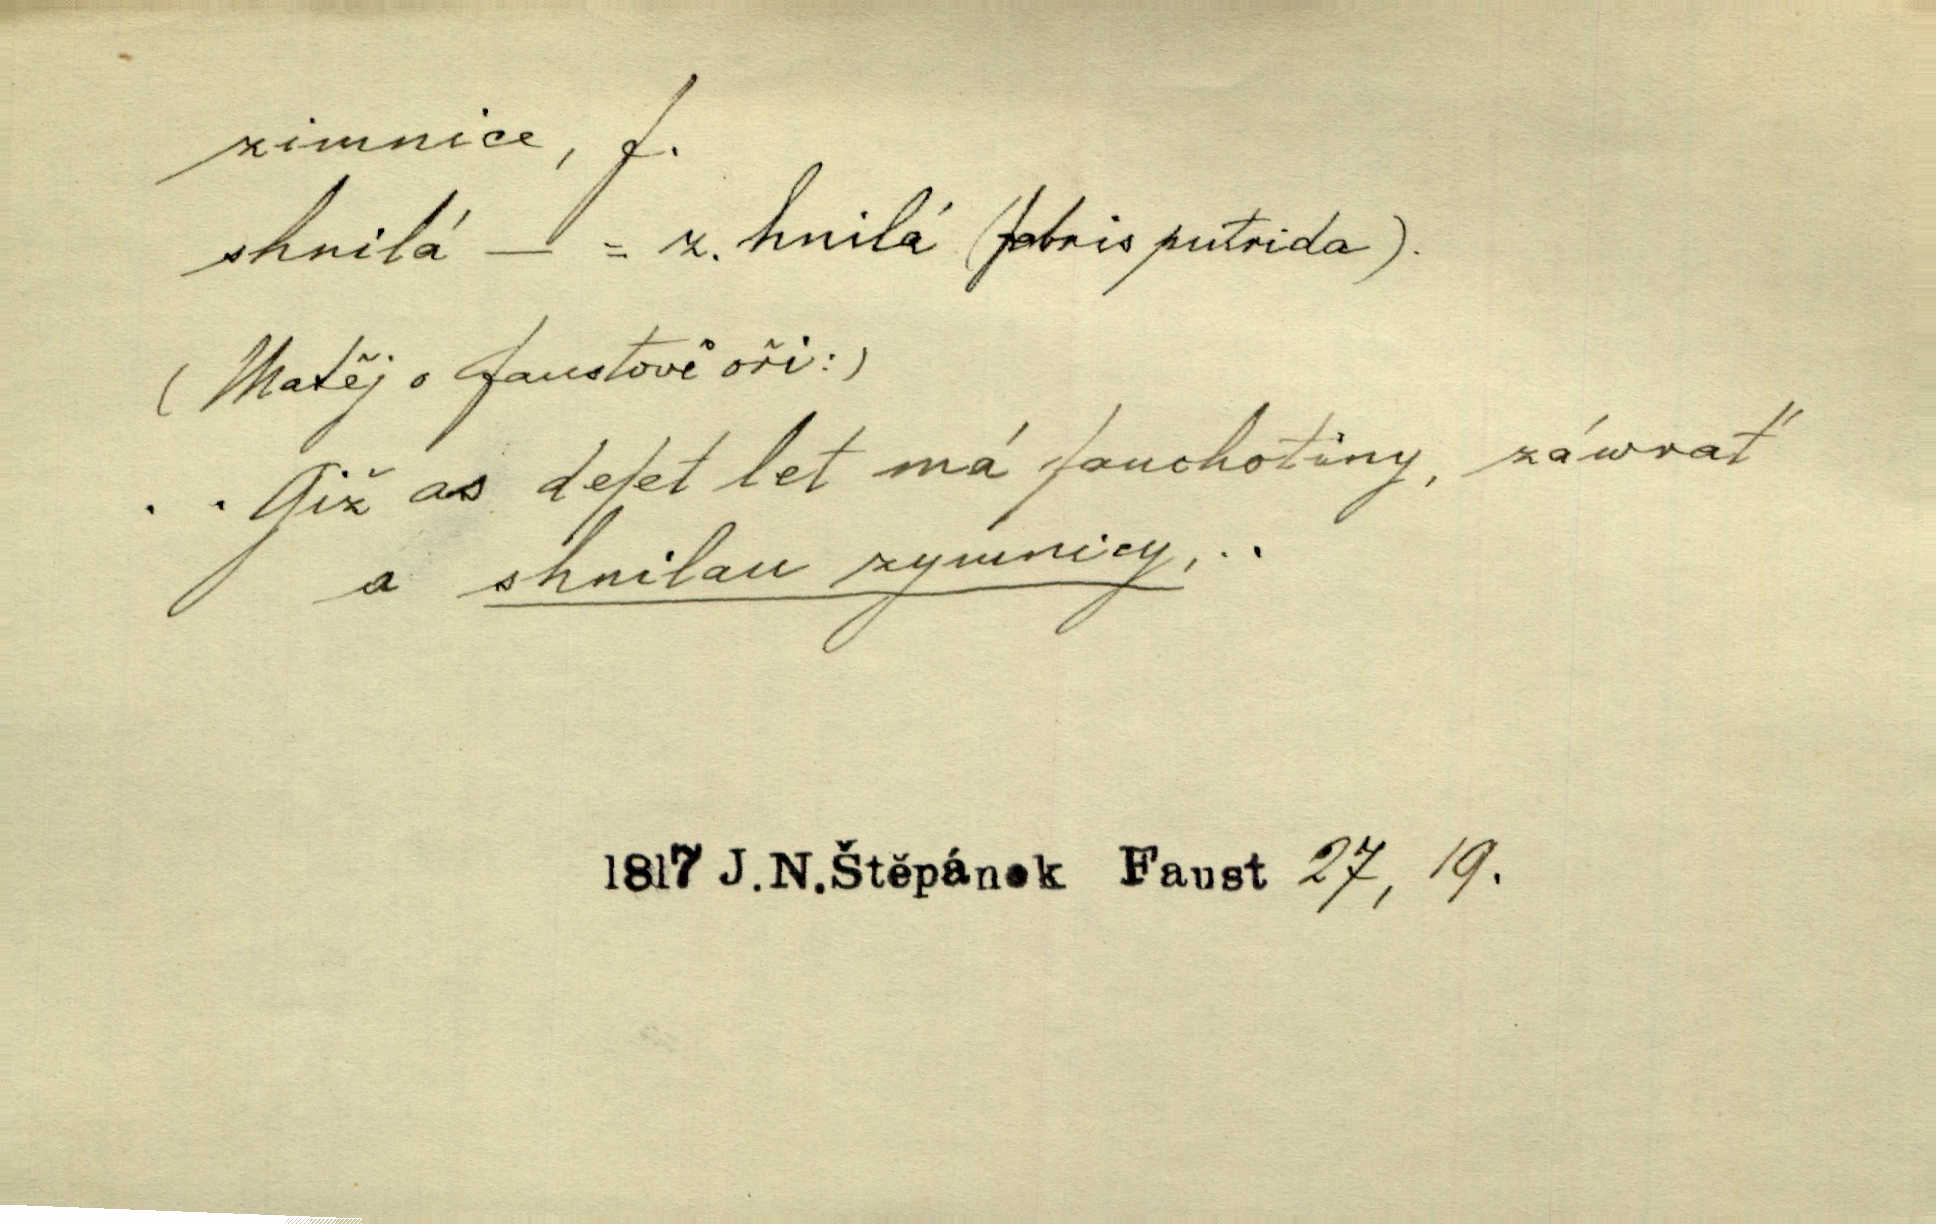 zimnice, f.
shnilá — = z. hnilá (febris putrida).
(Matěj o Faustově oři:)
. . Giž as deſet let má ſauchotiny, záwrať
a shnilau zymnicy, . .
1817 J.N.Štěpánek Faust 27, 19.